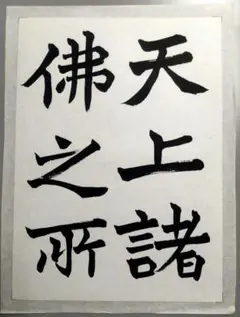 天上諸
佛之所